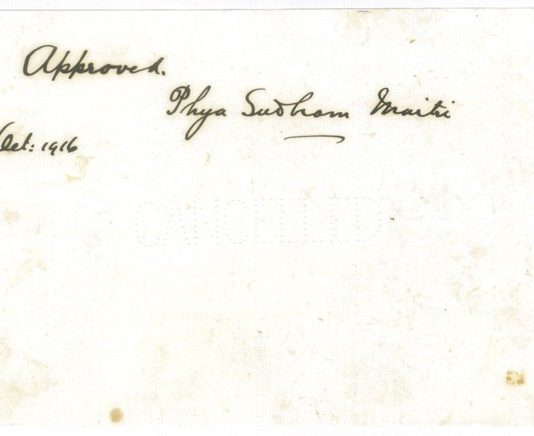 Approved.
Phya Sudham Maitri
Oct: 1916
CANCELLED